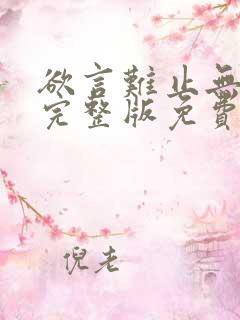 欲言難止無
完整版免費
倪老